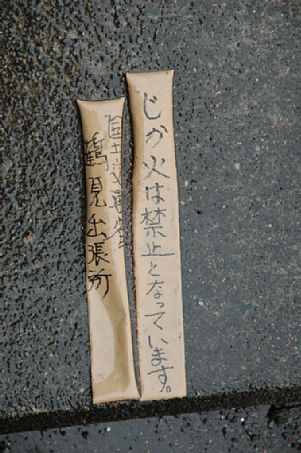 じか火は禁止となっています。
国土交通省
鶴見出張所